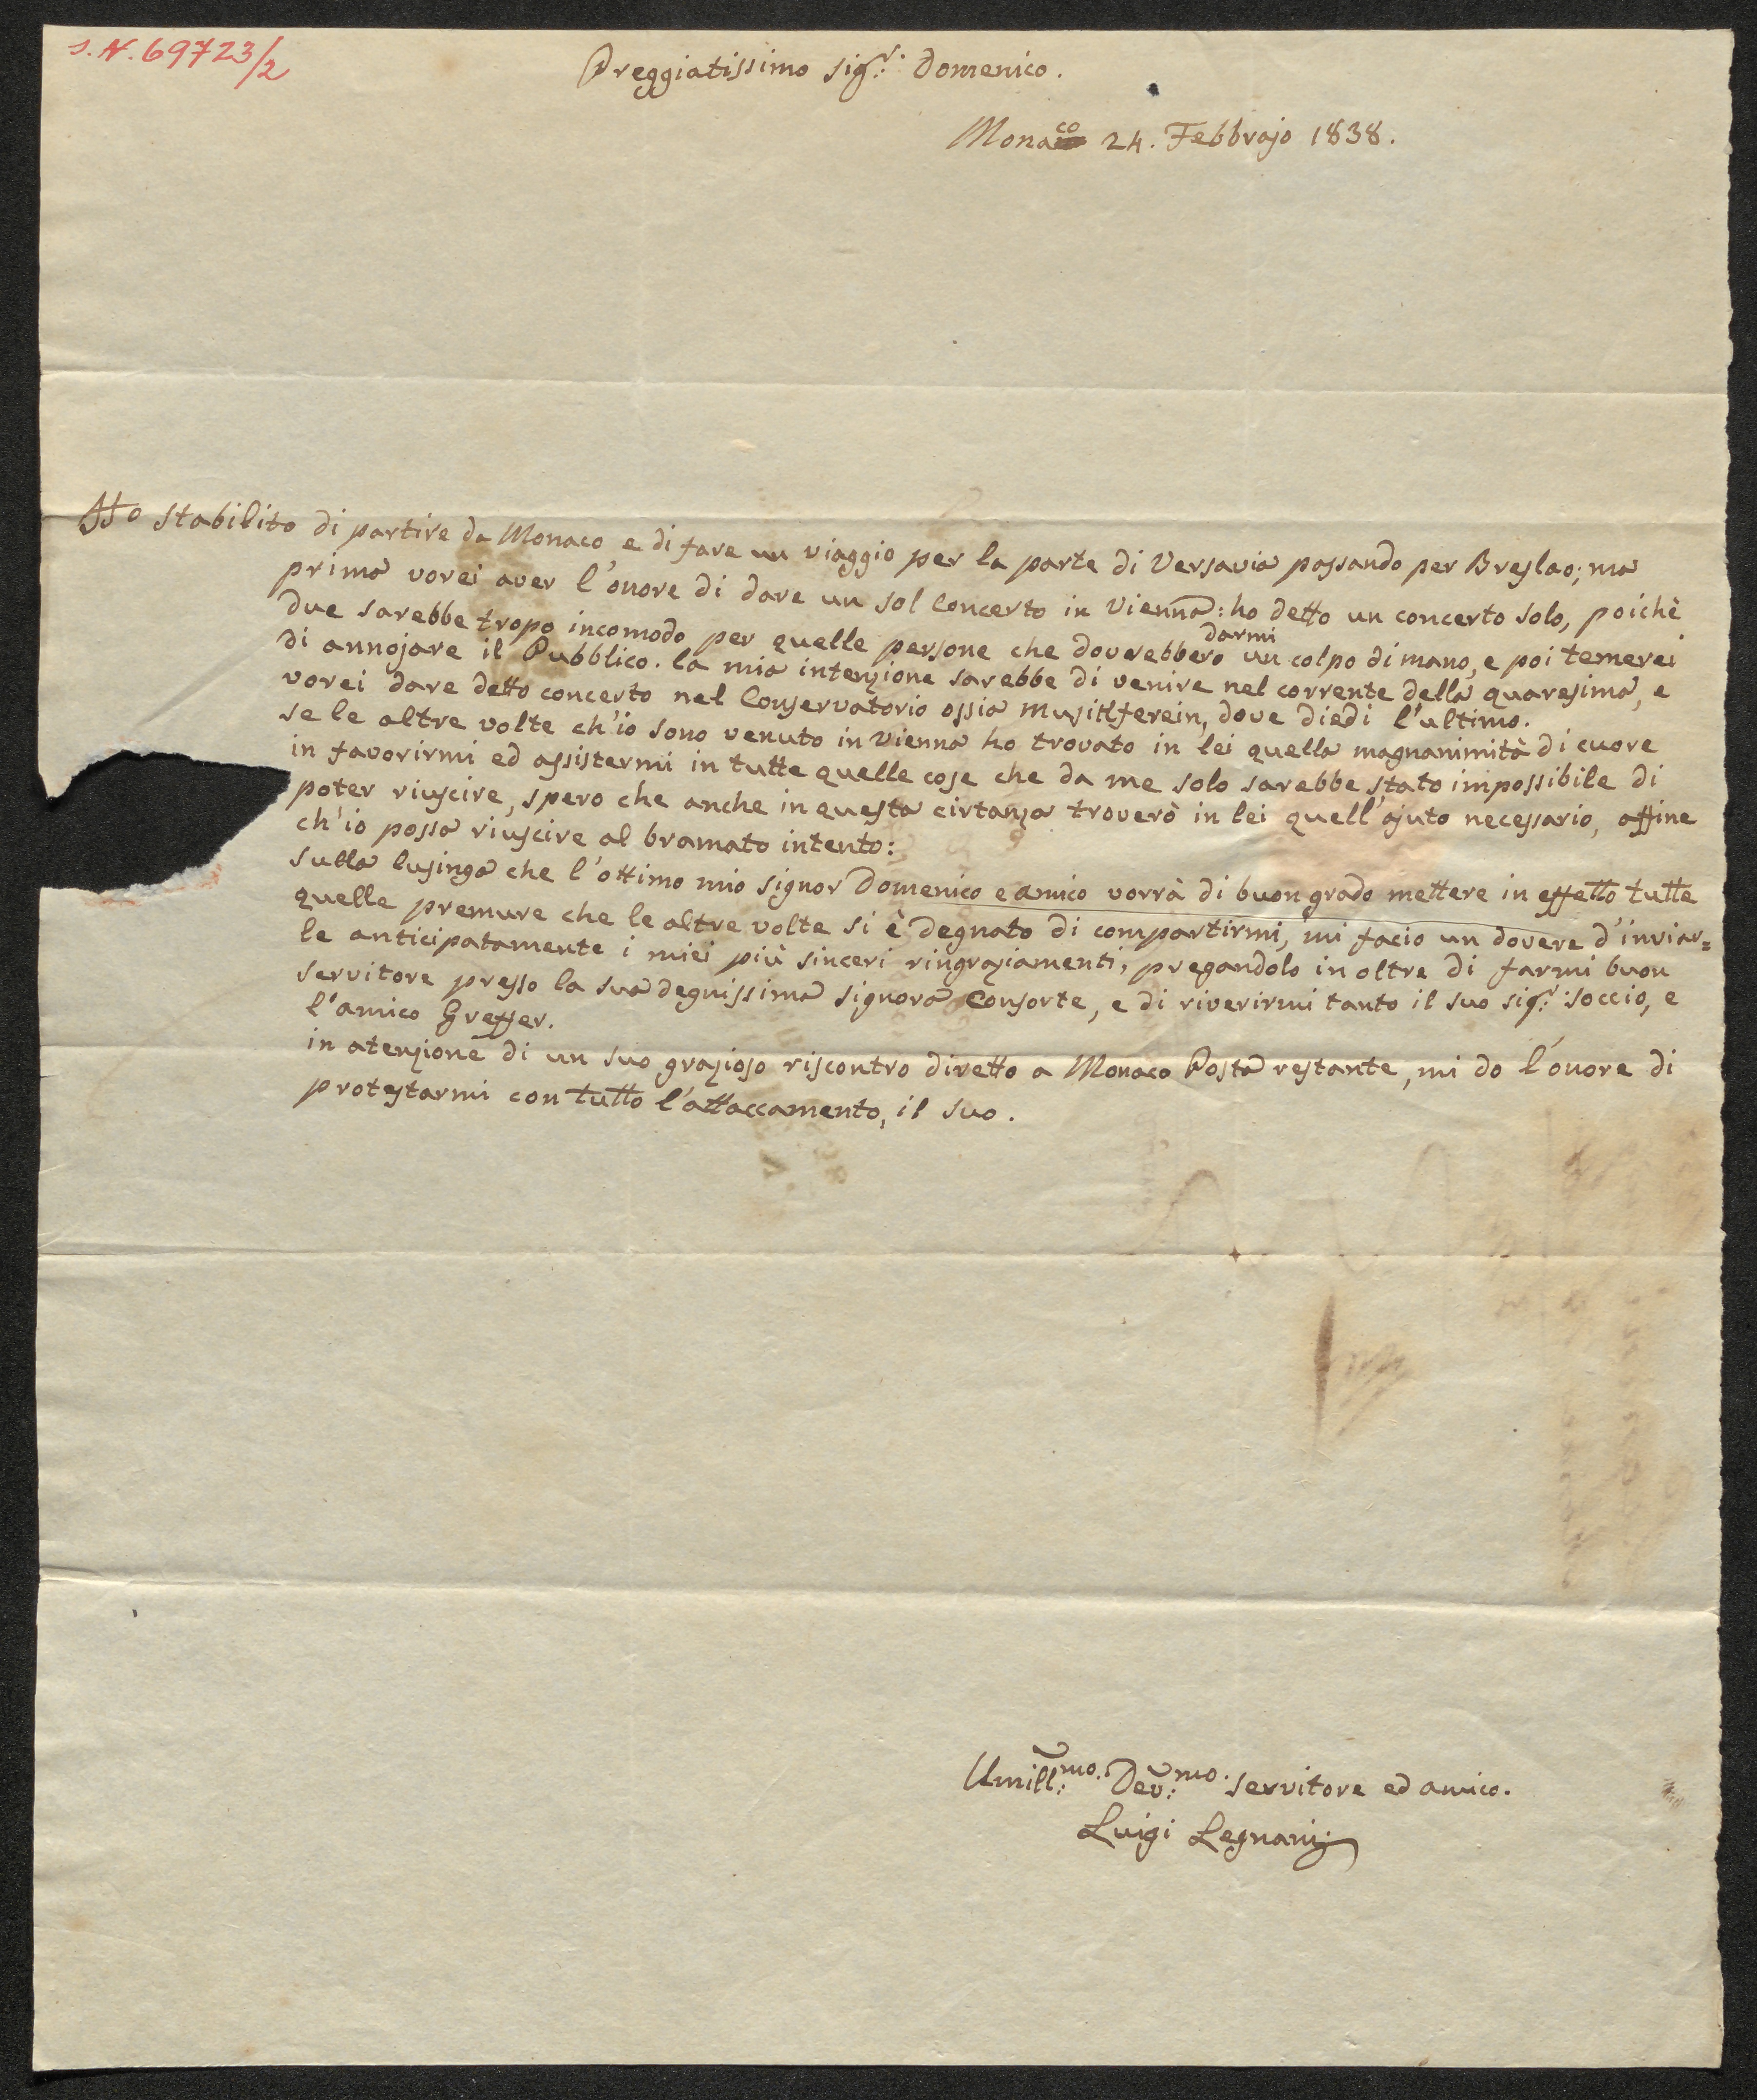 J. N. 69723/2
Preggiatissimo Sig.r Domenico.
Monaco 24. Febbrajo 1838.
Ho stabilito di partire da Monaco e di fare un viaggio per la parte di Versavia passando per Breslao; ma
prima vorei aver l'onore di dare un sol Concerto in Vienna: ho detto un concerto solo, poichè
due sarebbe tropo incomodo per quelle persone che doverebbero darmi un colpo di mano, e poi temerei
di annojare il Pubblico. la mia intenzione sarebbe di venire nel corrente della quaresima, e
vorei dare detto concerto nel Conservatorio ossia Musikferein, dove diedi l'ultimo.
se le altre volte ch'io sono venuto in Vienna ho trovato in lei quella magnanimità di cuore
in favorirmi ed assistermi in tutte quelle cose che da me solo sarebbe stato impossibile di
poter riuscire, spero che anche in questa cirtanza troverò in lei quell'ajuto necessario, affine
ch'io possa riuscire al bramato intento:
sulla lusinga che l'ottimo mio Signor Domenico e amico vorrà di buon grado mettere in effetto tutte
quelle premure che le altre volte si è degnato di compartirmi, mi facio un dovere d'inviar=
le anticipatamente i miei più sinceri ringraziamenti, pregandolo in oltre di farmi buon
servitore presso la sua degnissima Signora Consorte, e di riverirmi tanto il suo Sig.r soccio, e
l'amico Greffer.
in atenzione di un suo grazioso riscontro diretto a Monaco Posta restante, mi do l'onore di
protestarmi con tutto l'attaccamento, il suo.
Umill:mo. Dev:mo. servitore ed amico.
Luigi Legnani